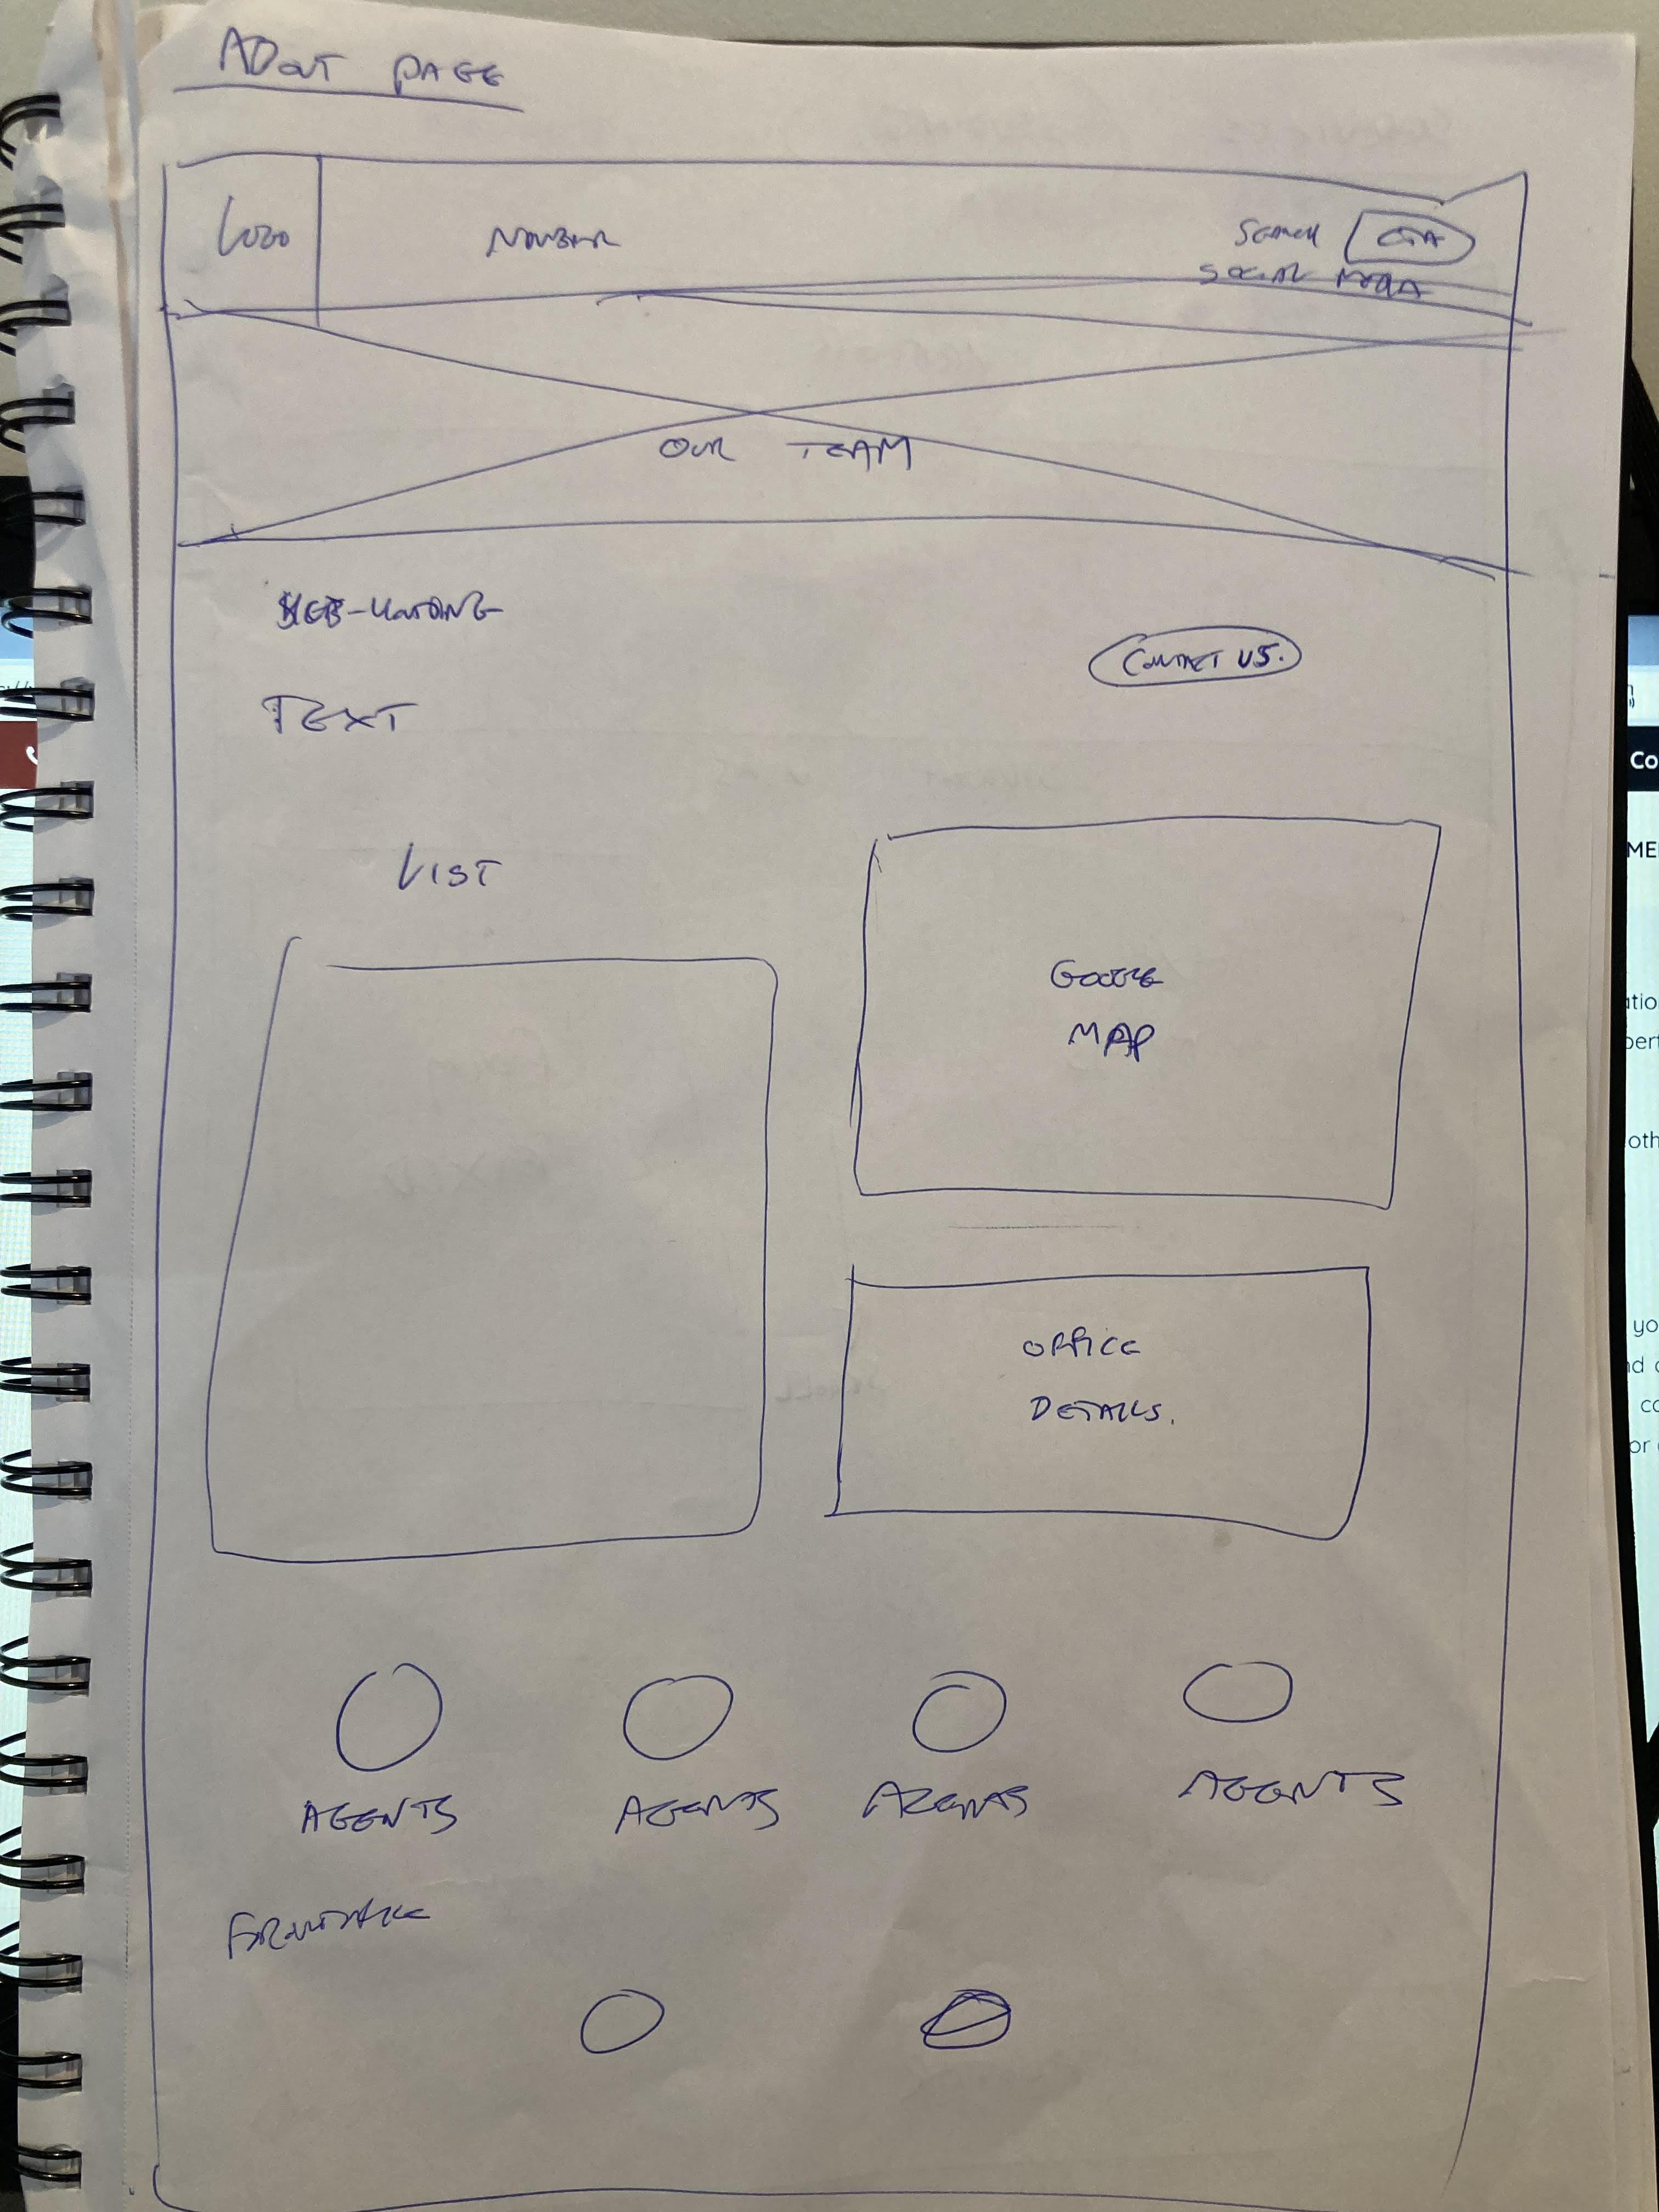 About PAGE
LOGO
NUMBER
SEARCH CTA
SOCIAL MEDIA
OUR TEAM
SUB-HEADING
CONTACT US.
TEXT
LIST
GOOGLE
MAP
OFFICE
DETAILS.
AGENTS AGENTS AGENTS AGENTS
Co
ME
atio
oth
yo
co